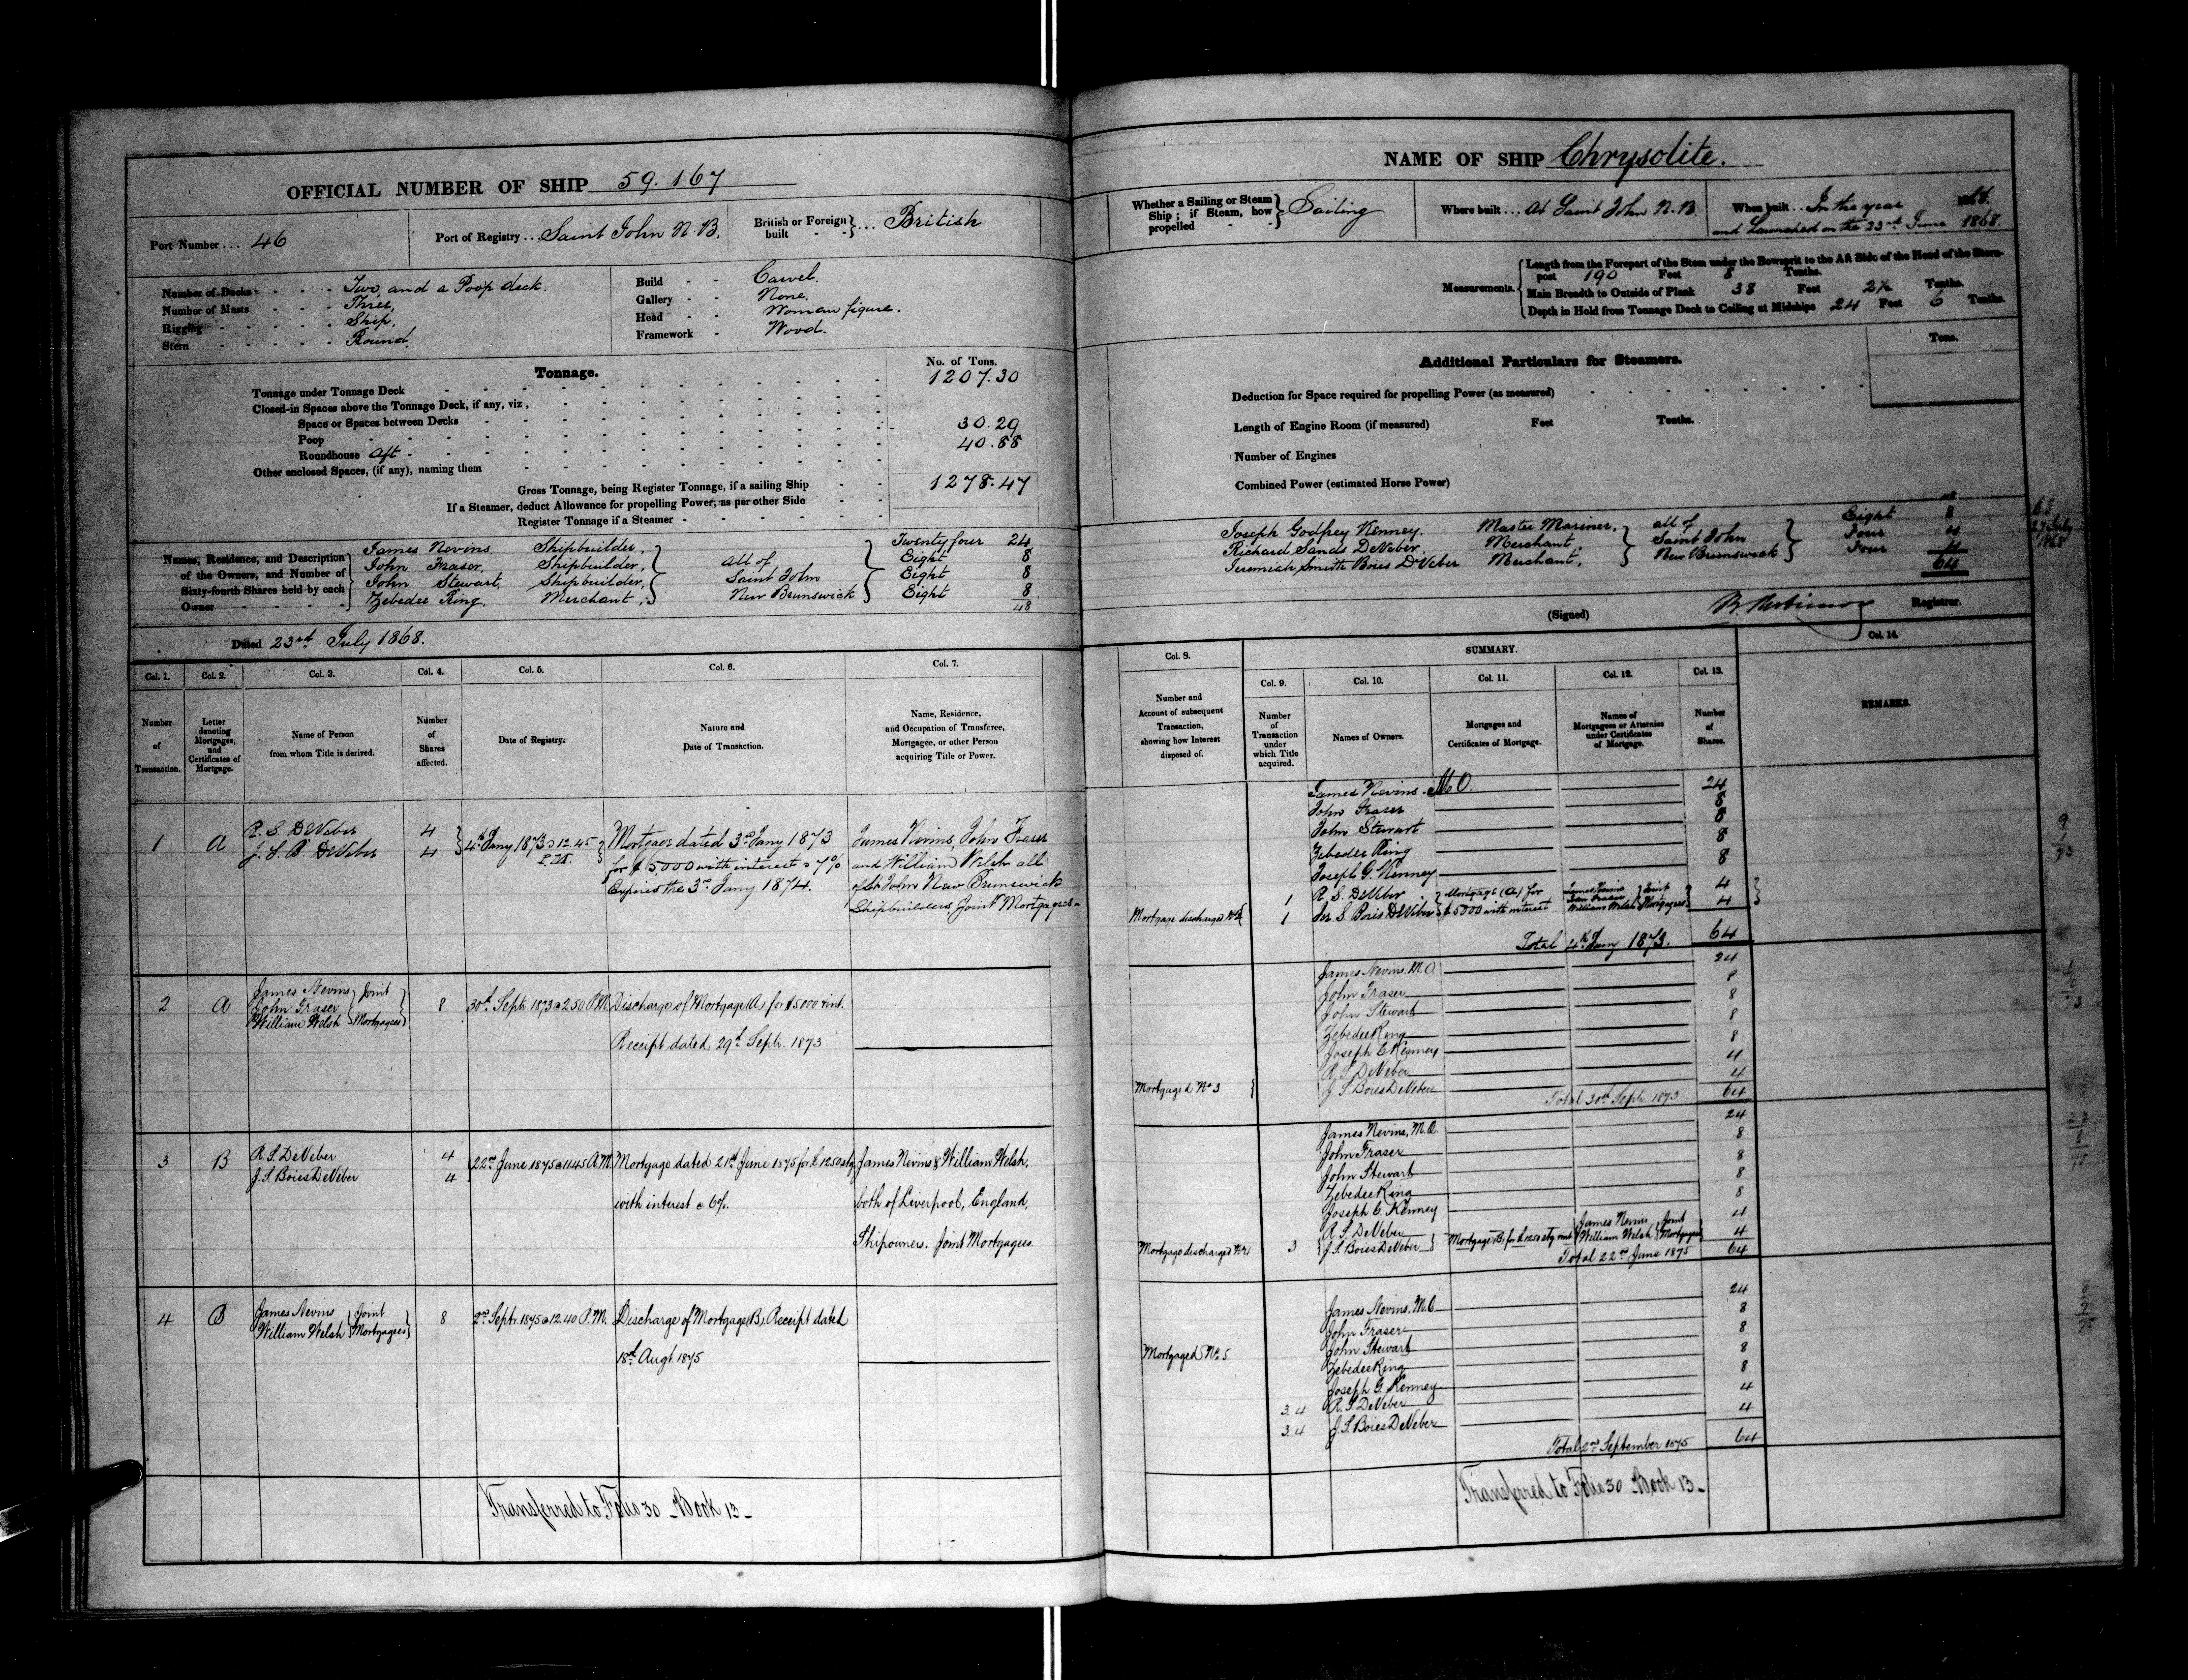 OFFICIAL NUMBER OF SHIP 59.167
Port Number ... 46
Port of Registry ... Saint John N.B.
British or Foreign built - - } ... British
Number of Decks - - - Two and a Poop deck.
Number of Masts - - - Three,
Rigging - - - - - Ship,
Stern - - - - - - Round.
Build - - Carvel.
Gallery - - None.
Head - - Woman figure.
Framework - Wood.
Tonnage.
No. of Tons.
Tonnage under Tonnage Deck 1207.30
Closed-in Spaces above the Tonnage Deck, if any, viz,
Space or Spaces between Decks
Poop 30.29
Roundhouse Aft 40.88
Other enclosed Spaces, (if any), naming them
Gross Tonnage, being Register Tonnage, if a sailing Ship 1278.47
If a Steamer, deduct Allowance for propelling Power, as per other Side
Register Tonnage if a Steamer
Names, Residence, and Description of the Owners, and Number of Sixty-fourth Shares held by each Owner
James Nevins Shipbuilder, Twenty four 24
John Fraser, Shipbuilder, all of Eight 8
John Stewart, Shipbuilder, Saint John Eight 8
Zebedee Ring, Merchant, New Brunswick Eight 8
48
Dated 23rd July 1868.
Col. 1. Col. 2. Col. 3. Col. 4. Col. 5. Col. 6. Col. 7.
Number of Transaction.
Letter denoting Mortgages, and Certificates of Mortgage.
Name of Person from whom Title is derived.
Number of Shares affected.
Date of Registry.
Nature and Date of Transaction.
Name, Residence, and Occupation of Transferee, Mortgagee, or other Person acquiring Title or Power.
1 A R. S. DeVeber 4 4th Jany 1873 @ 12.45 Mortgage dated 3rd Jany 1873 James Nevins, John Fraser
J. S. B. DeVeber 4 P.M. for $5,000 with interest @ 7% and William Welsh all
Expires the 3rd Jany 1874. of St John New Brunswick
Shipbuilders, Joint Mortgagees
2 A James Nevins Joint 8 30th Septr. 1873 @ 2.50 P.M. Discharge of Mortgage (A) for $5000 & int.
John Fraser
William Welsh Mortgagees
Receipt dated 29th Septr. 1873
3 B R. S. DeVeber 4 22nd June 1875 @ 11.45 A.M. Mortgage dated 21st June 1875 for £1250 stg James Nevins & William Welsh,
J. S. Boies DeVeber 4 with interest @ 6%. both of Liverpool, England,
Shipowners. Joint Mortgagees
4 B James Nevins Joint 8 2nd Septr. 1875 @ 12.40 P.M. Discharge of Mortgage (B), Receipt dated
William Welsh Mortgagees 18th Augt. 1875
Transferred to Folio 30 - Book 13 -
NAME OF SHIP Chrysolite.
Whether a Sailing or Steam Ship; if Steam, how propelled - - } Sailing
Where built ... At Saint John N.B.
When built ... In the year 1868.
and Launched on the 23rd June 1868.
Measurements.
Length from the Forepart of the Stem under the Bowsprit to the Aft Side of the Head of the Stern-post 190 Feet 8 Tenths.
Main Breadth to Outside of Plank 38 Feet 2½ Tenths.
Depth in Hold from Tonnage Deck to Ceiling at Midships 24 Feet 6 Tenths.
Additional Particulars for Steamers.
Tons.
Deduction for Space required for propelling Power (as measured)
Length of Engine Room (if measured) Feet Tenths.
Number of Engines
Combined Power (estimated Horse Power)
48
Joseph Godfrey Kenney. Master Mariner, all of Eight 8
Richard Sands DeVeber. Merchant, Saint John Four 4
Jeremiah Smith Boies DeVeber Merchant, New Brunswick Four 4
64
27 July
1868
(Signed) Registrar.
Col. 8. SUMMARY. Col. 14.
Col. 9. Col. 10. Col. 11. Col. 12. Col. 13.
Number and Account of subsequent Transaction, showing how Interest disposed of.
Number of Transaction under which Title acquired.
Names of Owners.
Mortgages and Certificates of Mortgage.
Names of Mortgagees or Attornies under Certificates of Mortgage.
Number of Shares.
REMARKS.
James Nevins - M.O. 24
John Fraser 8
John Stewart 8
Zebedee Ring 8
Joseph G. Kenney 8
1 R. S. DeVeber Mortgage (A) for James Nevins Joint 4
John Fraser
Mortgage discharged No 2 1 Jer. S. Boies DeVeber $5000 with interest William Welsh Mortgagees 4
Total 4th Jany 1873. 64
9
1
73
James Nevins, M.O. 24
John Fraser 8
John Stewart 8
Zebedee Ring 8
Joseph G. Kenney 8
R. S. DeVeber 4
Mortgaged No 3 J. S. Boies DeVeber 4
Total 30th Septr. 1873 64
1
10
73
James Nevins, M.O. 24
John Fraser 8
John Stewart 8
Zebedee Ring 8
Joseph G. Kenney 8
R. S. DeVeber James Nevins Joint 4
Mortgage discharged No 4 3 J. S. Boies DeVeber Mortgage (B) for £1250 stg & int William Welsh Mortgagees 4
Total 22nd June 1875 64
23
8
75
James Nevins, M.O. 24
John Fraser 8
Mortgaged No. 5 John Stewart 8
Zebedee Ring 8
Joseph G. Kenney 8
3.4 R. S. DeVeber 4
3.4 J. S. Boies DeVeber 4
Total 2nd September 1875 64
8
2
75
Transferred to Folio 30 - Book 13 -